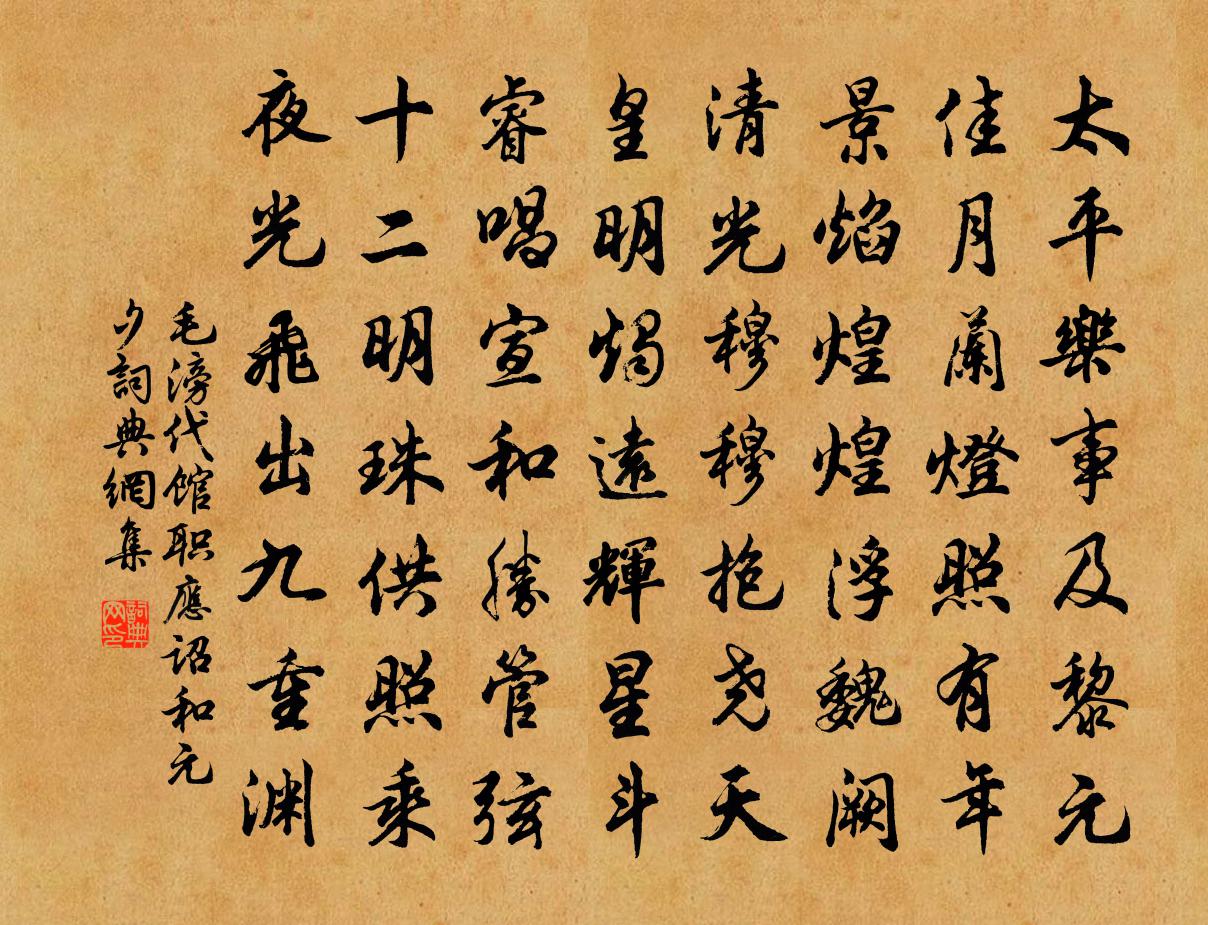 太平樂事及黎元
佳月蘭燈照有年
景焰煌煌浮魏闕
清光穆穆抱尧天
皇明燭遠輝星斗
睿唱宣和勝管弦
十二明珠供照乘
夜光飛出九重渊
毛滂代馆职應诏和元
夕詞典網集
詞典
网印